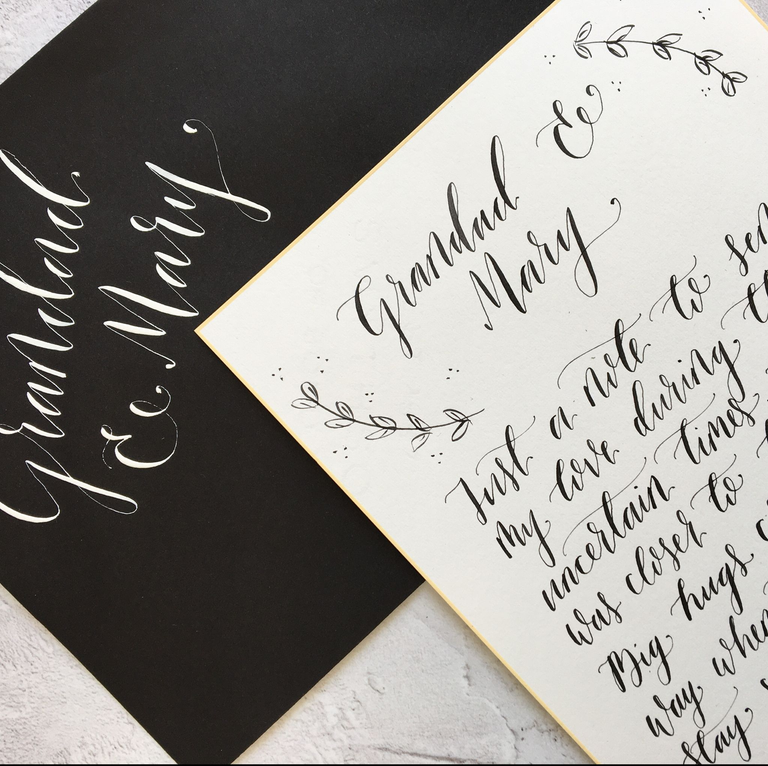 Grandad
& Mary
Grandad &
Mary
Just a note to
my love during
uncertain times
was closer to
Big hugs
way when
stay